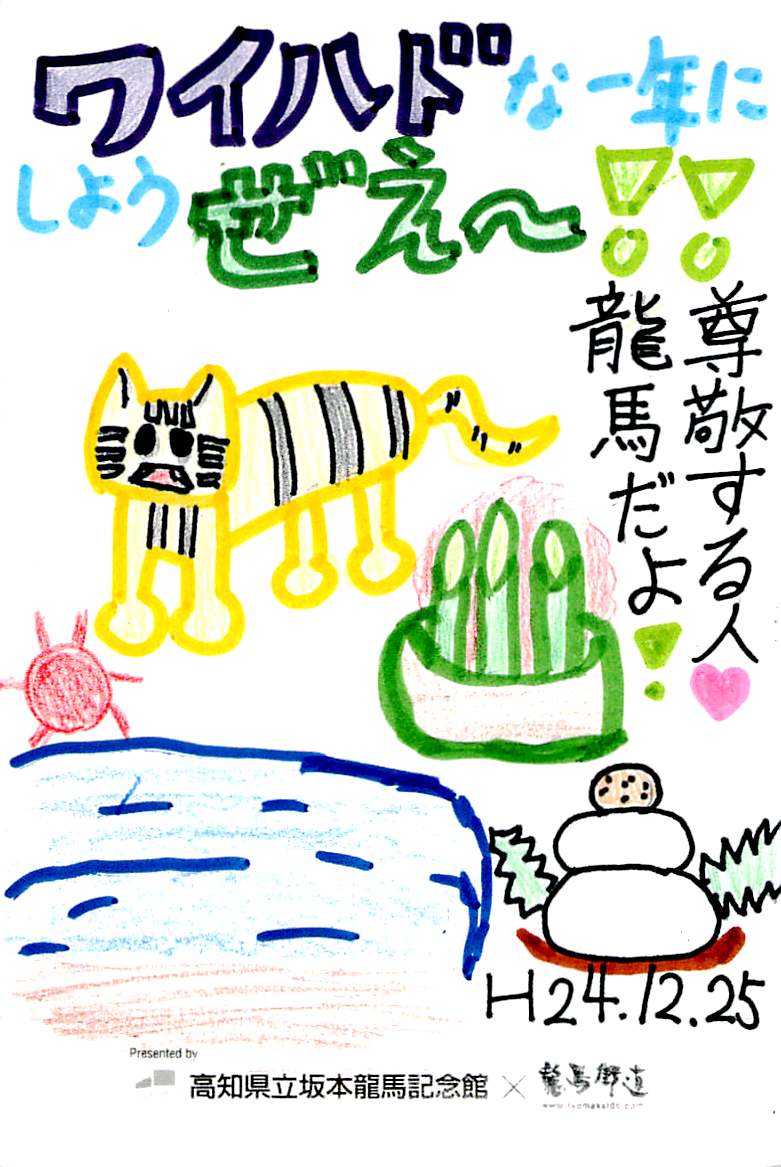 ワイルドな一年に
しようぜぇ〜!!
尊敬する人
龍馬だよ!
H24.12.25
Presented by
高知県立坂本龍馬記念館×龍馬街道